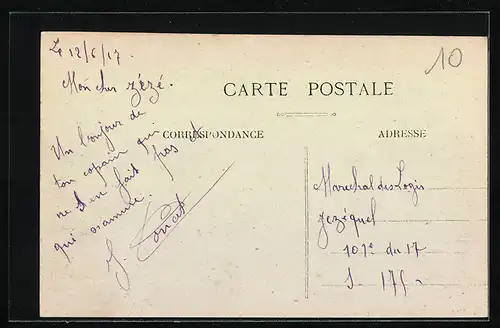 Le 12/6/17.
10
Mon cher Zézé.
CARTE POSTALE
Un bonjour de
ton copain qui
ne s'en fait pas &
qui s'ammuse.
CORRESPONDANCE
ADRESSE
Marechal des Logis
Jezéquel
101e du 17
S. 175